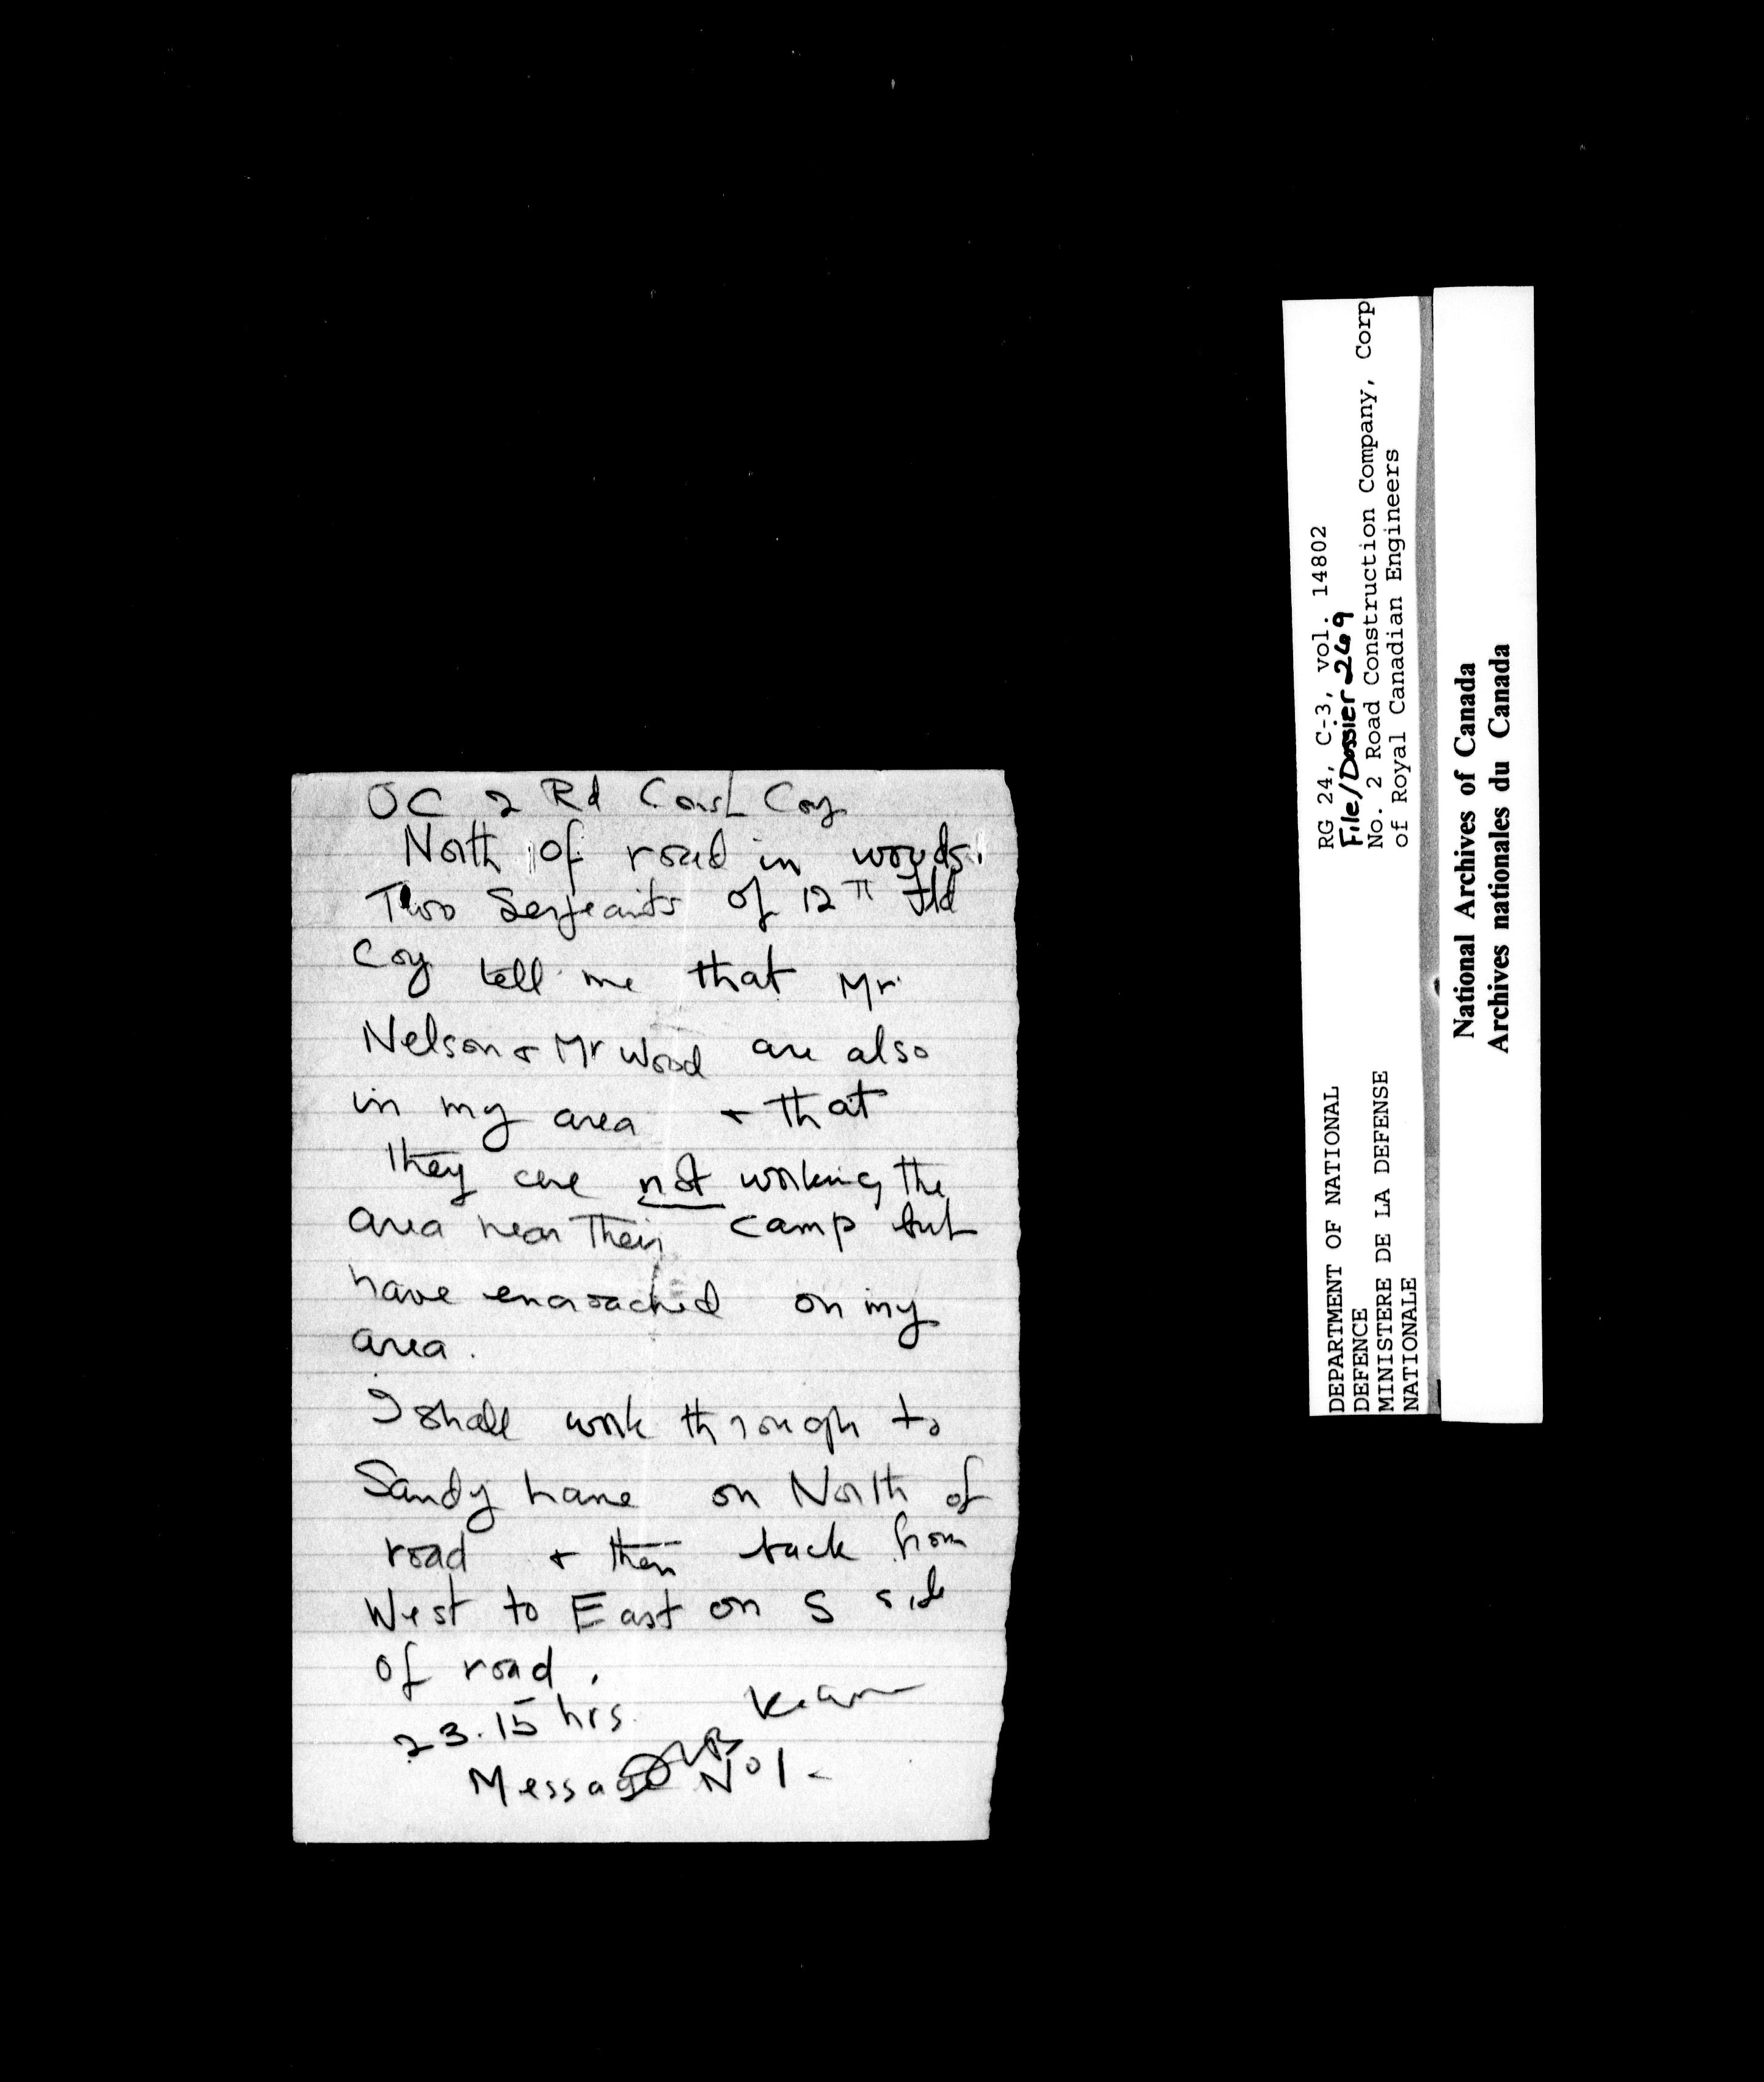 OC 2 Rd Const Coy
North of road in woods.
Two Serjeants of 12TH Fld
Coy tell me that Mr
Nelson & Mr Wood are also
in my area & that
they are not working the
area near their camp but
have encroached on my
area.
I shall work through to
Sandy Lane on North of
road & then back from
West to East on S side
of road.
23.15 hrs.
Message No 1.
RG 24, C-3, vol. 14802
File/Dossier 269
No. 2 Road Construction Company, Corp
of Royal Canadian Engineers
DEPARTMENT OF NATIONAL
DEFENCE
MINISTERE DE LA DEFENSE
NATIONALE
National Archives of Canada
Archives nationales du Canada